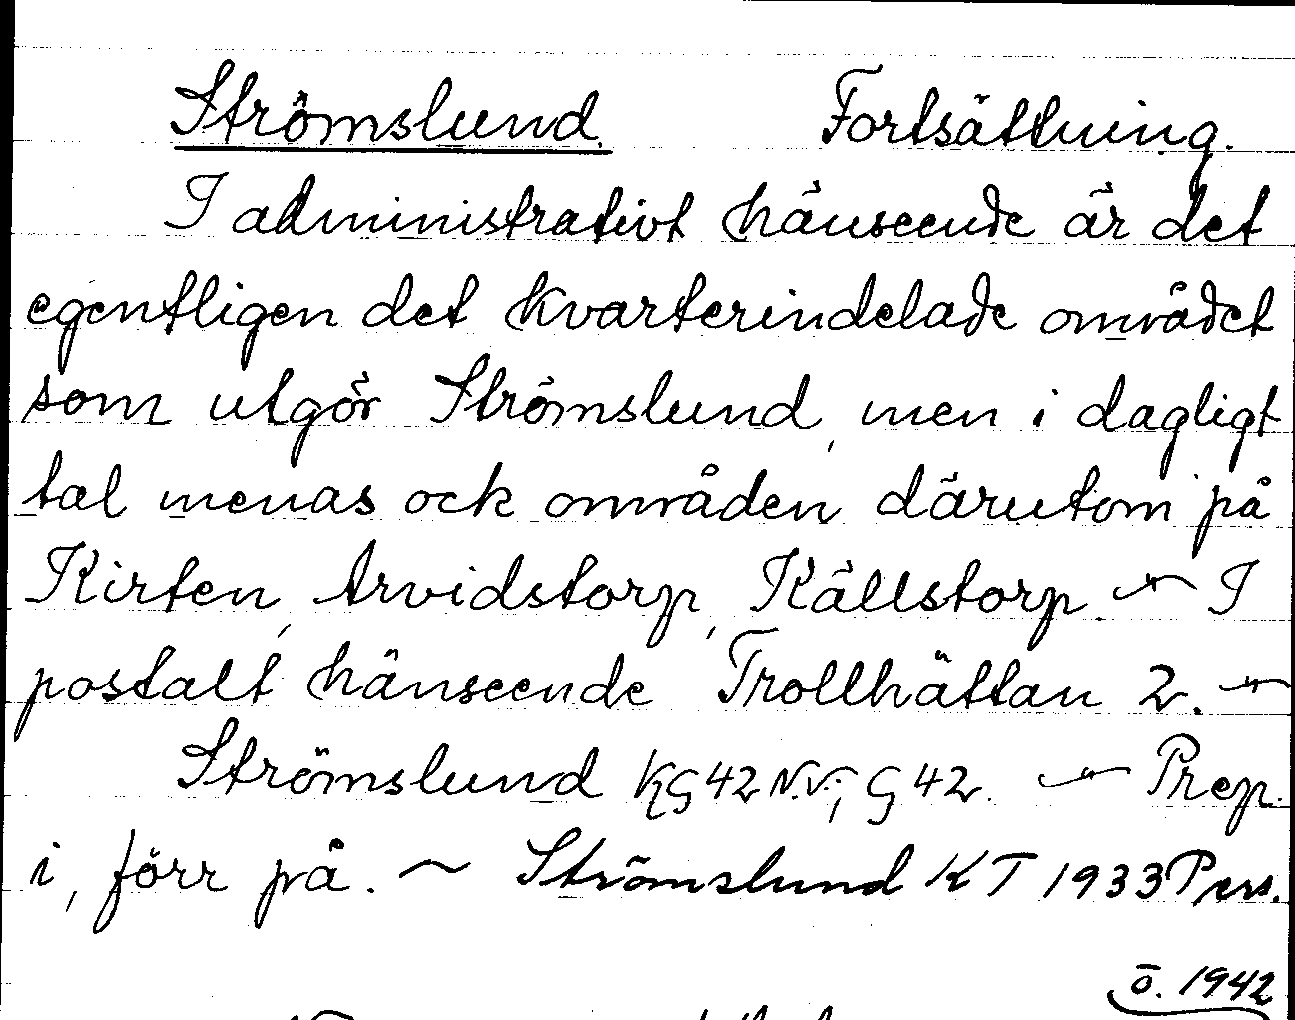 Strömslund. Fortsättning.
I administrativt hänseende är det
egentligen det kvarterindelade området
som utgör Strömslund, men i dagligt
tal menas ock områden därutom på
Kirten, Arvidstorp, Källstorp. — I
postalt hänseende Trollhättan 2. —
Strömslund KG42 N.V.; G 42. — Prep.
i, förr på. ~ Strömslund KT 1933 Pers.
ö. 1942